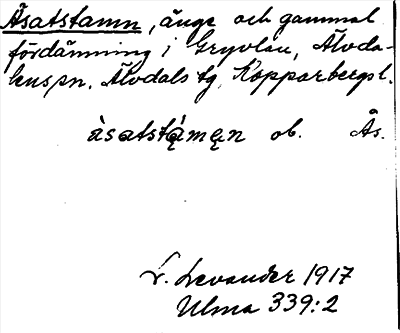 Åsatstamn, änge och gammal
fördämning i Gryvlan, Älvda-
lens sn. Älvdals tg, Kopparbergs l.
àsatstą́mąn ob. Ås.
L. Levander 1917
Ulma 339:2